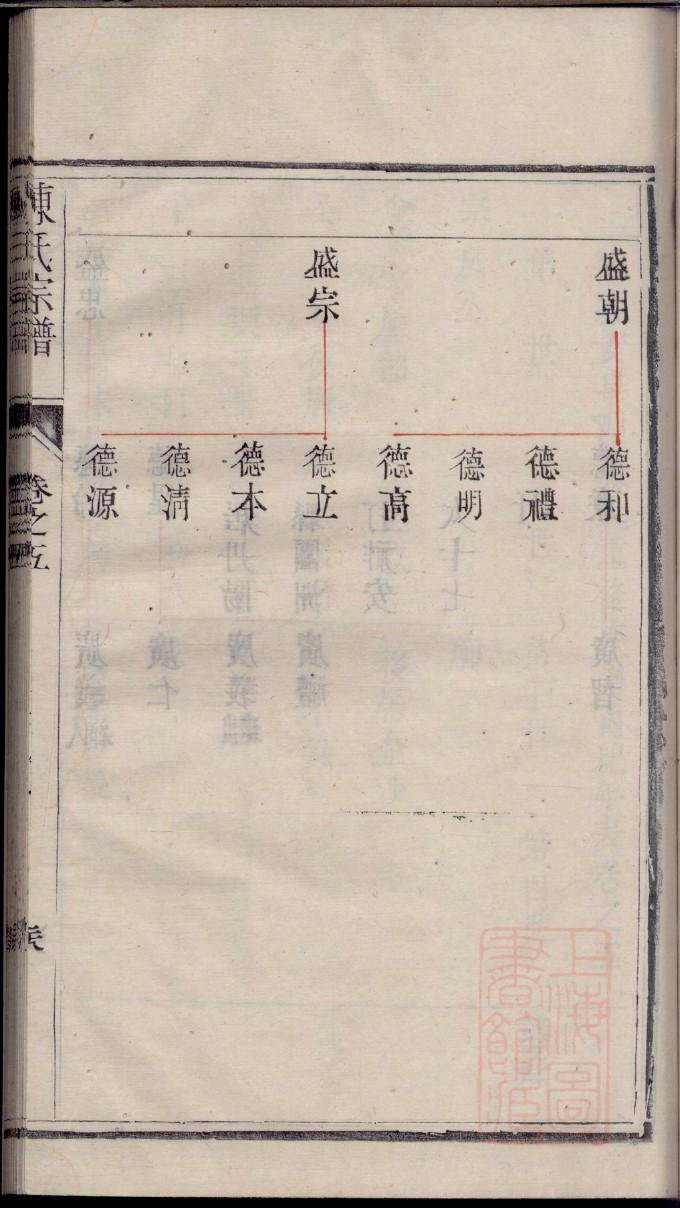 盛朝
德和
德禮
德明
德高
盛宗
德立
德本
德淸
德源
陳氏宗譜
卷之五
上海圖書館藏